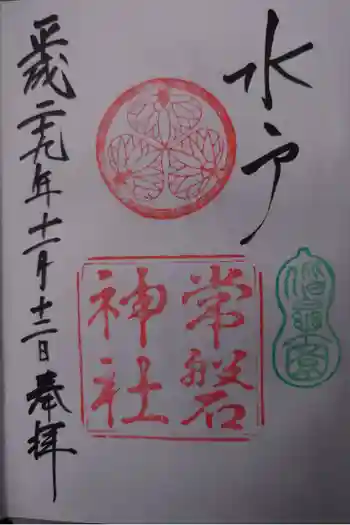 水戸
偕楽園
常磐
神社
平成二十九年十一月十二日奉拝